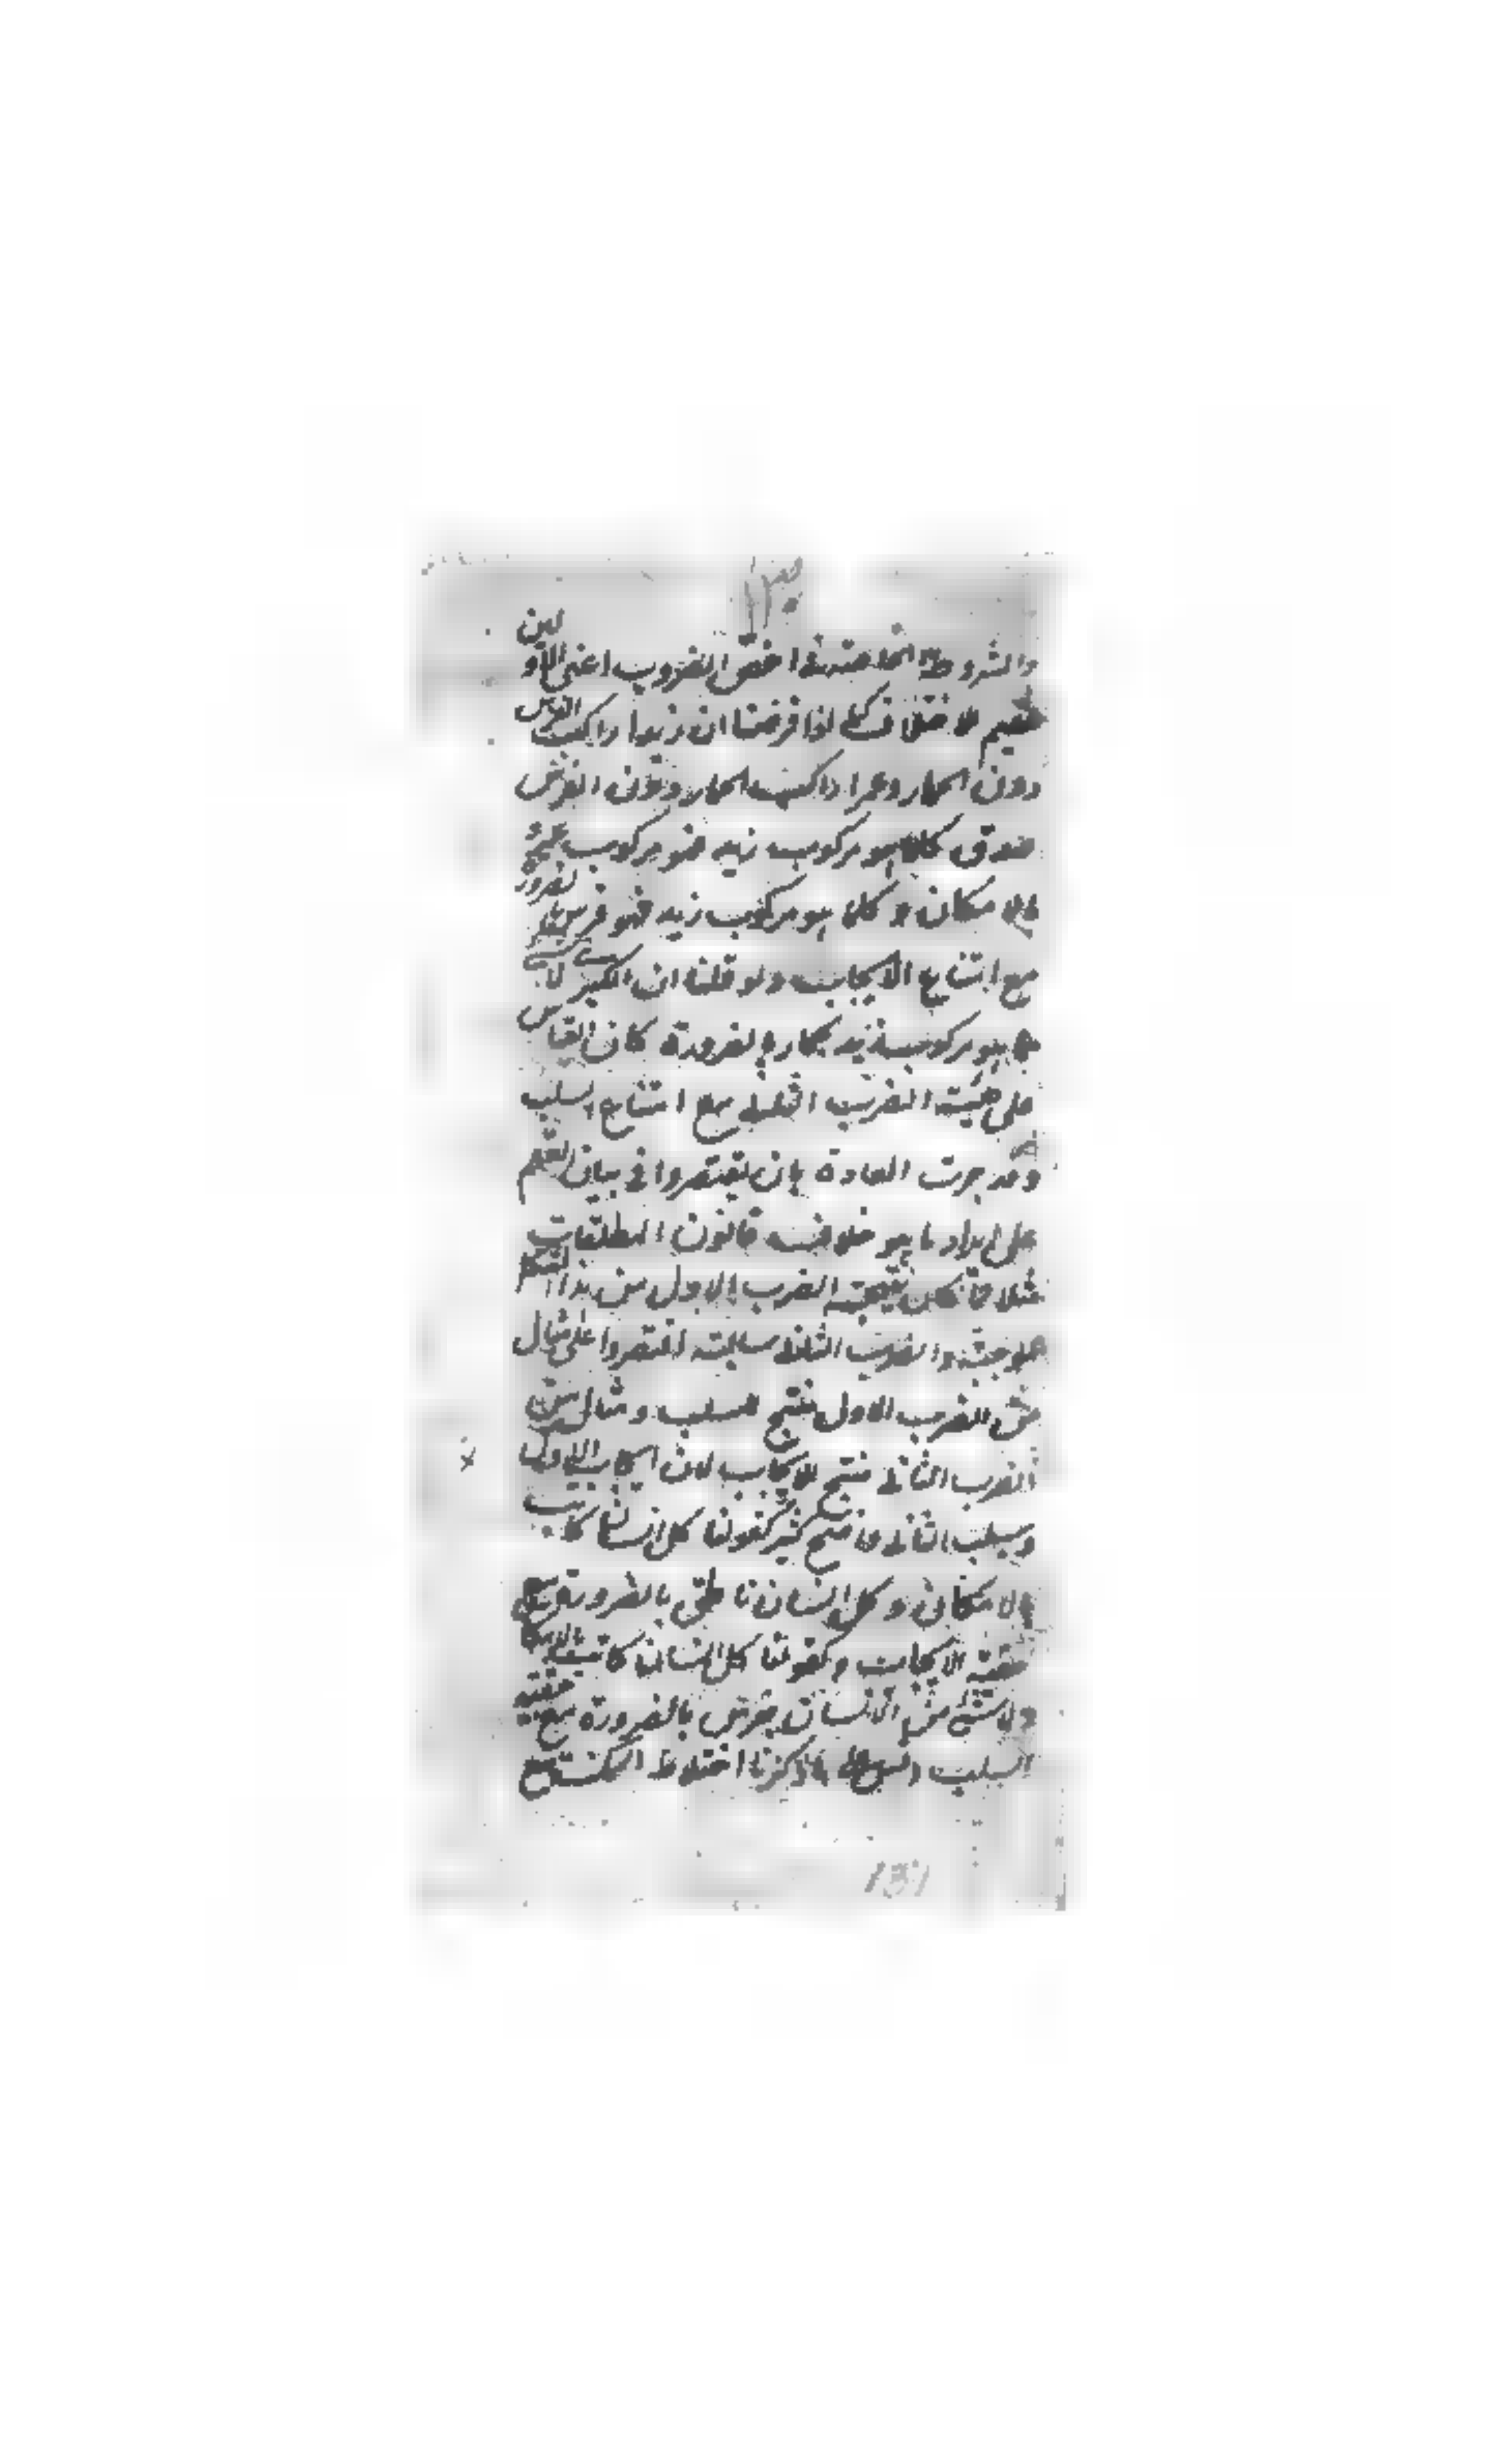 والمشروطة الخاصة في اخص الضروب اعنى الاولين
عقيم للاختلاف كما اذا فرضنا ان زيدا راكب الفرس
دون الحمار وعمرا راكب الحمار دون الفرس
صدق كلما هو مركوب زيد فهو مركوب عمرو
بالامكان و كلما هو مركوب زيد فهو فرس بالضرورة
مع امتناع الايجاب ولو قلنا ان الكبرى لا شيء
مما هو مركوب زيد بحمار بالضرورة كان القياس
على هيئة الضرب الثاني مع امتناع السلب
وقد جرت العادة بان يقتصروا في بيان العقم
على ايراد ما هو خلاف قانون المطلقات
مثلا لما كان نتيجة الضرب الاول من هذا الشكل
موجبة والضرب الثاني سالبة اقتصروا على مثال
من الضرب الاول ينتج السلب ومثال من
الضرب الثاني ينتج الايجاب لان ايجاب الاول
وسلب الثاني كثير كقولنا كل انسان كاتب
بالامكان وكل انسان ناطق بالضرورة مع
حقية الايجاب وكقولنا كل انسان كاتب بالامكان
ولا شيء من الانسان بفرس بالضرورة مع حقية
السلب ما ذكرنا اختلاط الممكنة مع
131